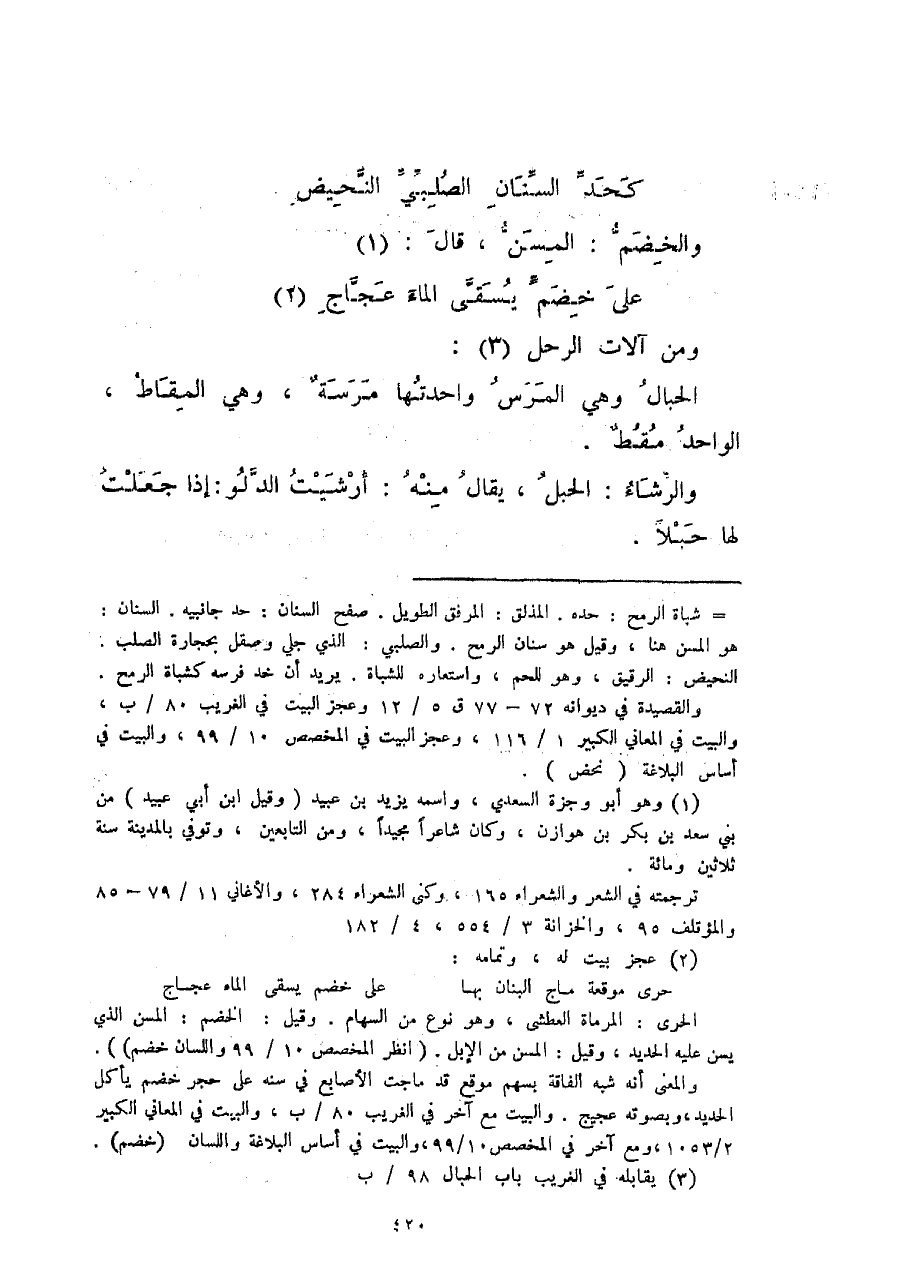 كَحَدِّ السِّنَانِ الصُّلَّبِيِّ النَّحِيضِ
والخِضَمُّ : المِسَنُّ ، قالَ : (١)
علىَ خِضَمٍّ يُسَقَّى الماءَ عَجَّاجِ (٢)
ومن آلات الرحل (٣) :
الحبالُ وهي المَرَسُ واحدتُها مَرَسَةٌ ، وهي المِقَاطُ ،
الواحدُ مُقُطٌ .
والرِّشَاءُ : الحبلُ ، يقالُ مِنْهُ : أرْشَيْتُ الدَّلْوَ : إذا جَعَلْتُ
لها حَبْلاً .
= شباة الرمح : حده . المذلق : المرفق الطويل . صفح السنان : حد جانبيه . السنان :
هو المسن هنا ، وقيل هو سنان الرمح . والصلبي : الذي جلي وصقل بحجارة الصلب .
النحيض : الرقيق ، وهو للحم ، واستعاره للشباة . يريد أن خد فرسه كشباة الرمح .
والقصيدة في ديوانه ٧٢ – ٧٧ ق ٥ / ١٢ وعجز البيت في الغريب ٨٠ / ب ،
والبيت في المعاني الكبير ١ / ١١٦ ، وعجز البيت في المخصص ١٠ / ٩٩ ، والبيت في
أساس البلاغة ( نحض ) .
(١) وهو أبو وجزة السعدي ، واسمه يزيد بن عبيد ( وقيل ابن أبي عبيد ) من
بني سعد بن بكر بن هوازن ، وكان شاعراً مجيداً ، ومن التابعين ، وتوفي بالمدينة سنة
ثلاثين ومائة .
ترجمته في الشعر والشعراء ١٦٥ ، وكنى الشعراء ٢٨٤ ، والأغاني ١١ / ٧٩ – ٨٥
والمؤتلف ٩٥ ، والخزانة ٣ / ٥٥٤ ، ٤ / ١٨٢
(٢) عجز بيت له ، وتمامه :
حرى موقعة مـاج البنان بهـا على خضم يسقى الماء عجـاج
الحرى : المرماة العطشى ، وهو نوع من السهام . وقيل : الخضم : المسن الذي
يسن عليه الحديد ، وقيل : المسن من الإبل . ( انظر المخصص ١٠ / ٩٩ واللسان خضم) ) .
والمعنى أنه شبه الفاقة بسهم موقع قد ماجت الأصابع في سنه على حجر خضم يأكل
الحديد،وبصوته عجيج . والبيت مع آخر في الغريب ٨٠ / ب ، والبيت في المعاني الكبير
١٠٥٣/٢ ،ومع آخر في المخصص ٩٩/١٠،والبيت في أساس البلاغة واللسان (خضم) .
(٣) يقابله في الغريب باب الحبال ٩٨ / ب
٤٢٠